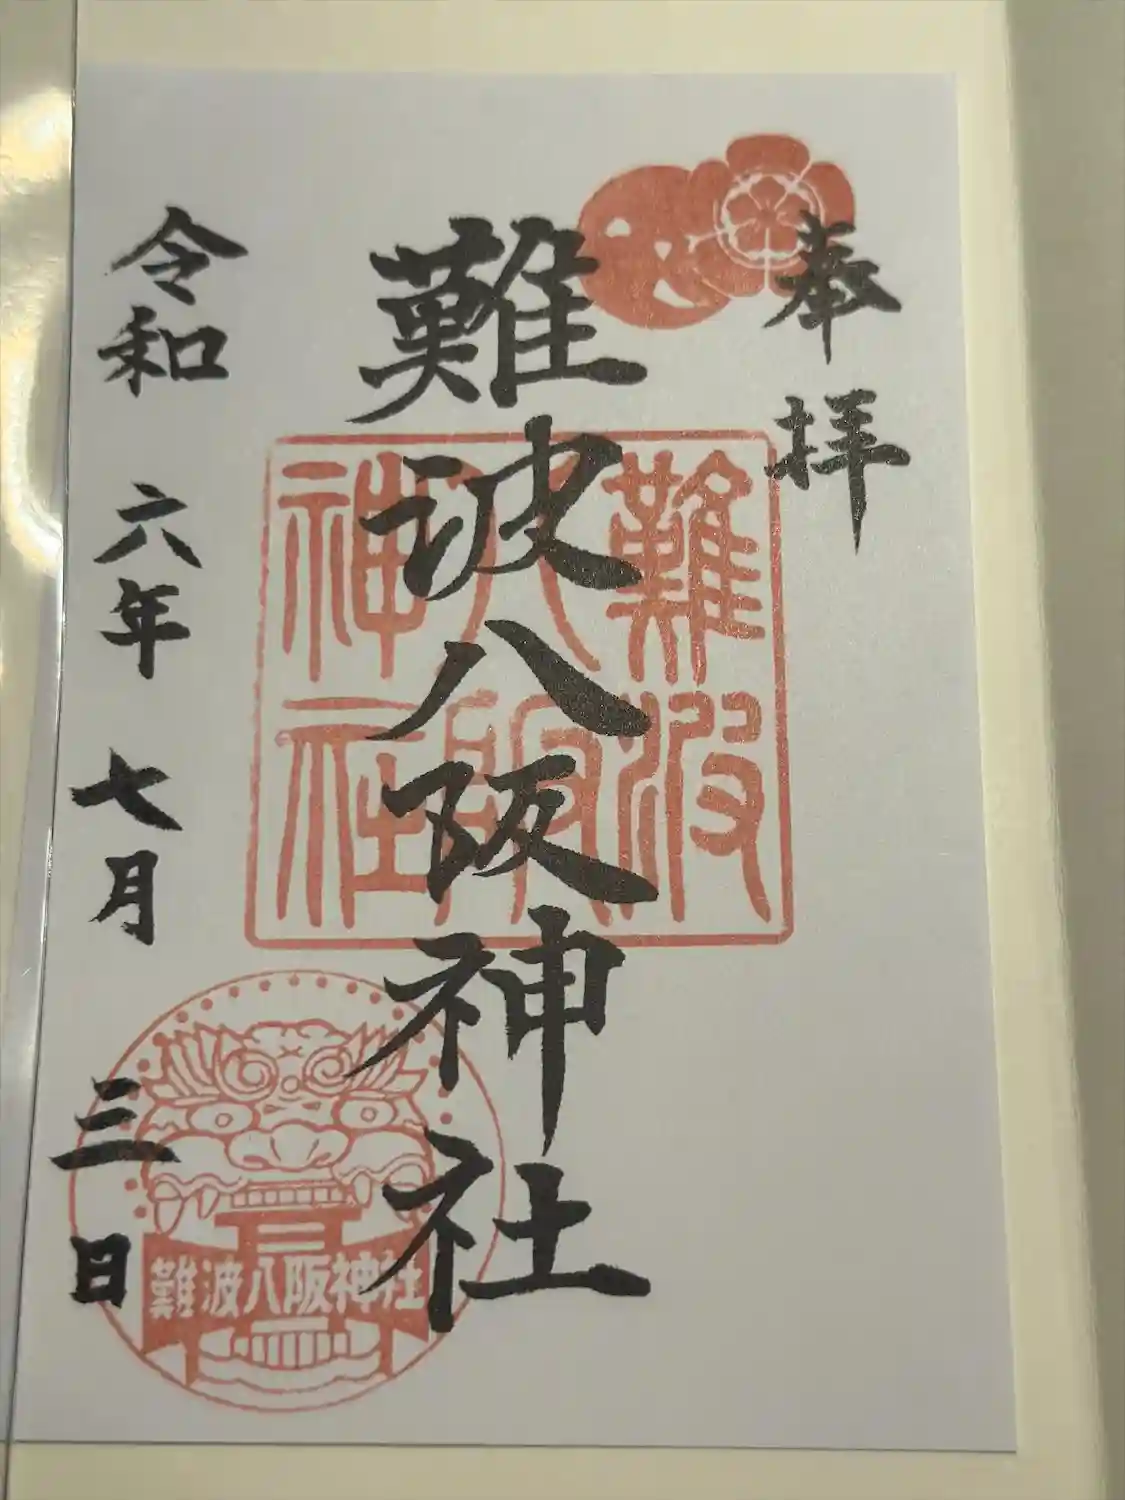 奉拝
難波八阪神社
難波
八阪
神社
令和 六年 七月 三日
難波八阪神社